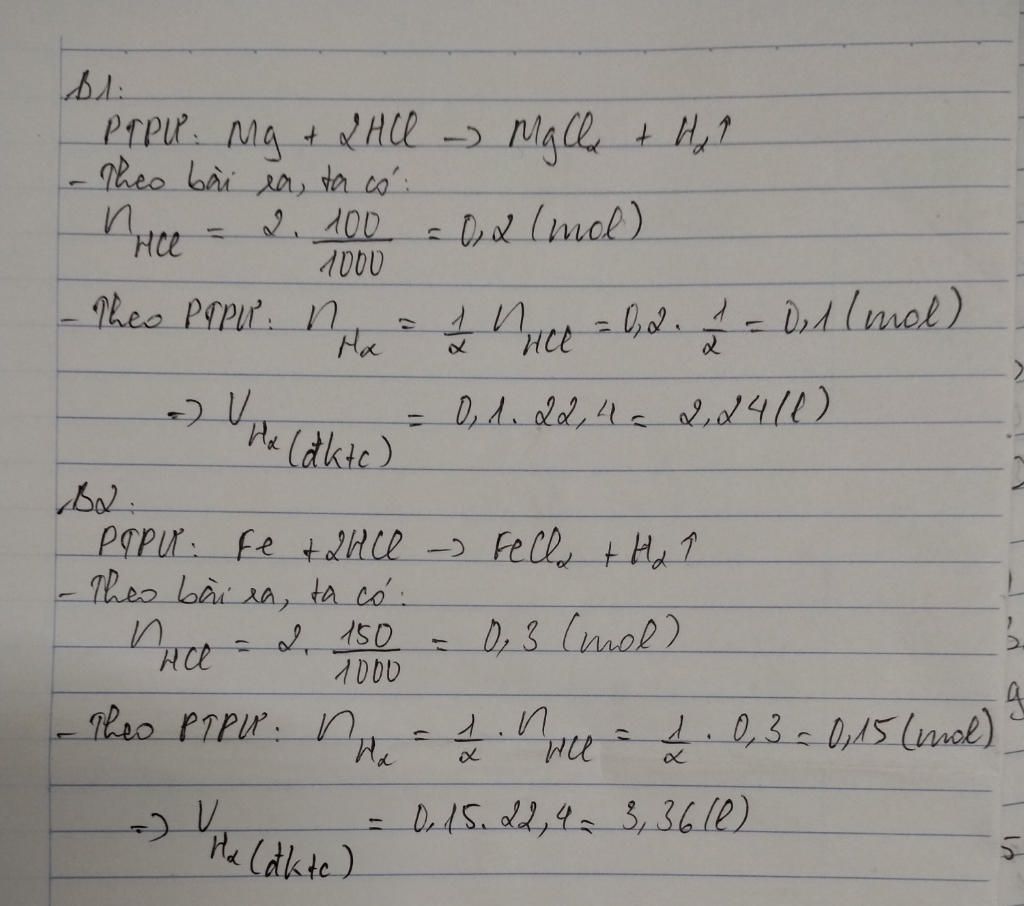 B1:
PTPƯ: Mg + 2HCl -> MgCl₂ + H₂↑
- Theo bài ra, ta có:
n_HCl = 2. 100/1000 = 0,2 (mol)
- Theo PTPƯ: n_H₂ = 1/2 n_HCl = 0,2. 1/2 = 0,1 (mol)
=> V_H₂(đktc) = 0,1. 22,4 = 2,24 (l)
B2:
PTPƯ: Fe + 2HCl -> FeCl₂ + H₂↑
- Theo bài ra, ta có:
n_HCl = 2. 150/1000 = 0,3 (mol)
- Theo PTPƯ: n_H₂ = 1/2 . n_HCl = 1/2 . 0,3 = 0,15 (mol)
=> V_H₂(đktc) = 0,15. 22,4 = 3,36 (l)